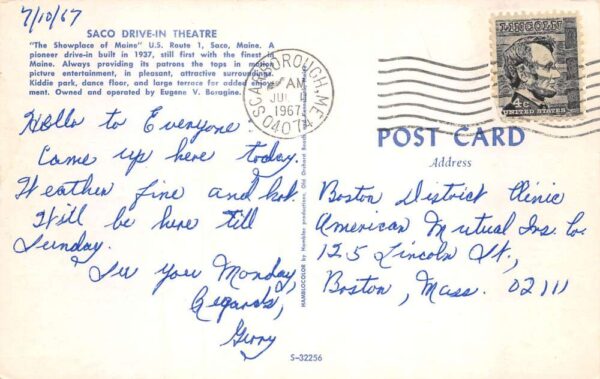 7/10/67
SACO DRIVE-IN THEATRE
"The Showplace of Maine" U.S. Route 1, Saco, Maine. A
pioneer drive-in built in 1937, still first with the finest in
Maine. Always providing its patrons the tops in motion
picture entertainment, in pleasant, attractive surroundings.
Kiddie park, dance floor, and large terrace for added enjoy-
ment. Owned and operated by Eugene V. Boragine.
Hello to Everyone
Came up here today.
Weather fine and hot.
Will be here till
Sunday.
See you Monday,
Regards,
Gerry
S-32256
HAMBLOCOLOR by Hambler productions, Old Orchard Beach
SCARBOROUGH, ME.
AM
JUL
1967
04074
LINCOLN
4c
UNITED STATES
POST CARD
Address
Boston District Clinic
American Mutual Ins. Co.
125 Lincoln St.,
Boston, Mass. 02111